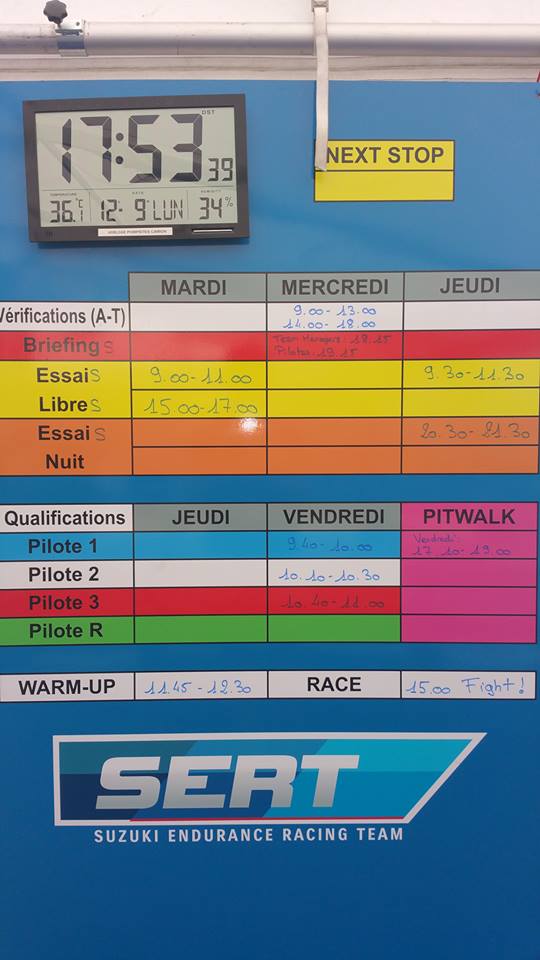 DST
17:53 39
TEMPERATURE DATE HUMIDITY
36.1 °C 12- 9- LUN 34%
HORLOGE POMPETES CAMION
NEXT STOP
MARDI MERCREDI JEUDI
Vérifications (A-T) 9.00-13.00
14.00-18.00
Briefings Team Managers: 18.15
Pilotes: 19.15
Essais 9.00-11.00 9.30-11.30
Libres 15.00-17.00
Essais 20.30-21.30
Nuit
Qualifications JEUDI VENDREDI PITWALK
Pilote 1 9.40-10.00 Vendredi:
17.10-19.00
Pilote 2 10.10-10.30
Pilote 3 10.40-11.00
Pilote R
WARM-UP 11.45-12.30 RACE 15.00 Fight!
SERT
SUZUKI ENDURANCE RACING TEAM